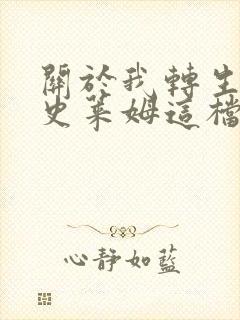 關於我轉生
史萊姆這檔
心靜如藍